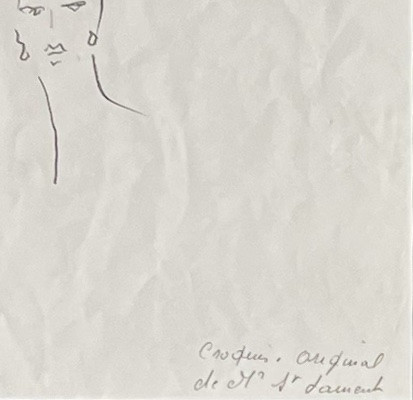 Croquis. Original
de Mr St Laurent